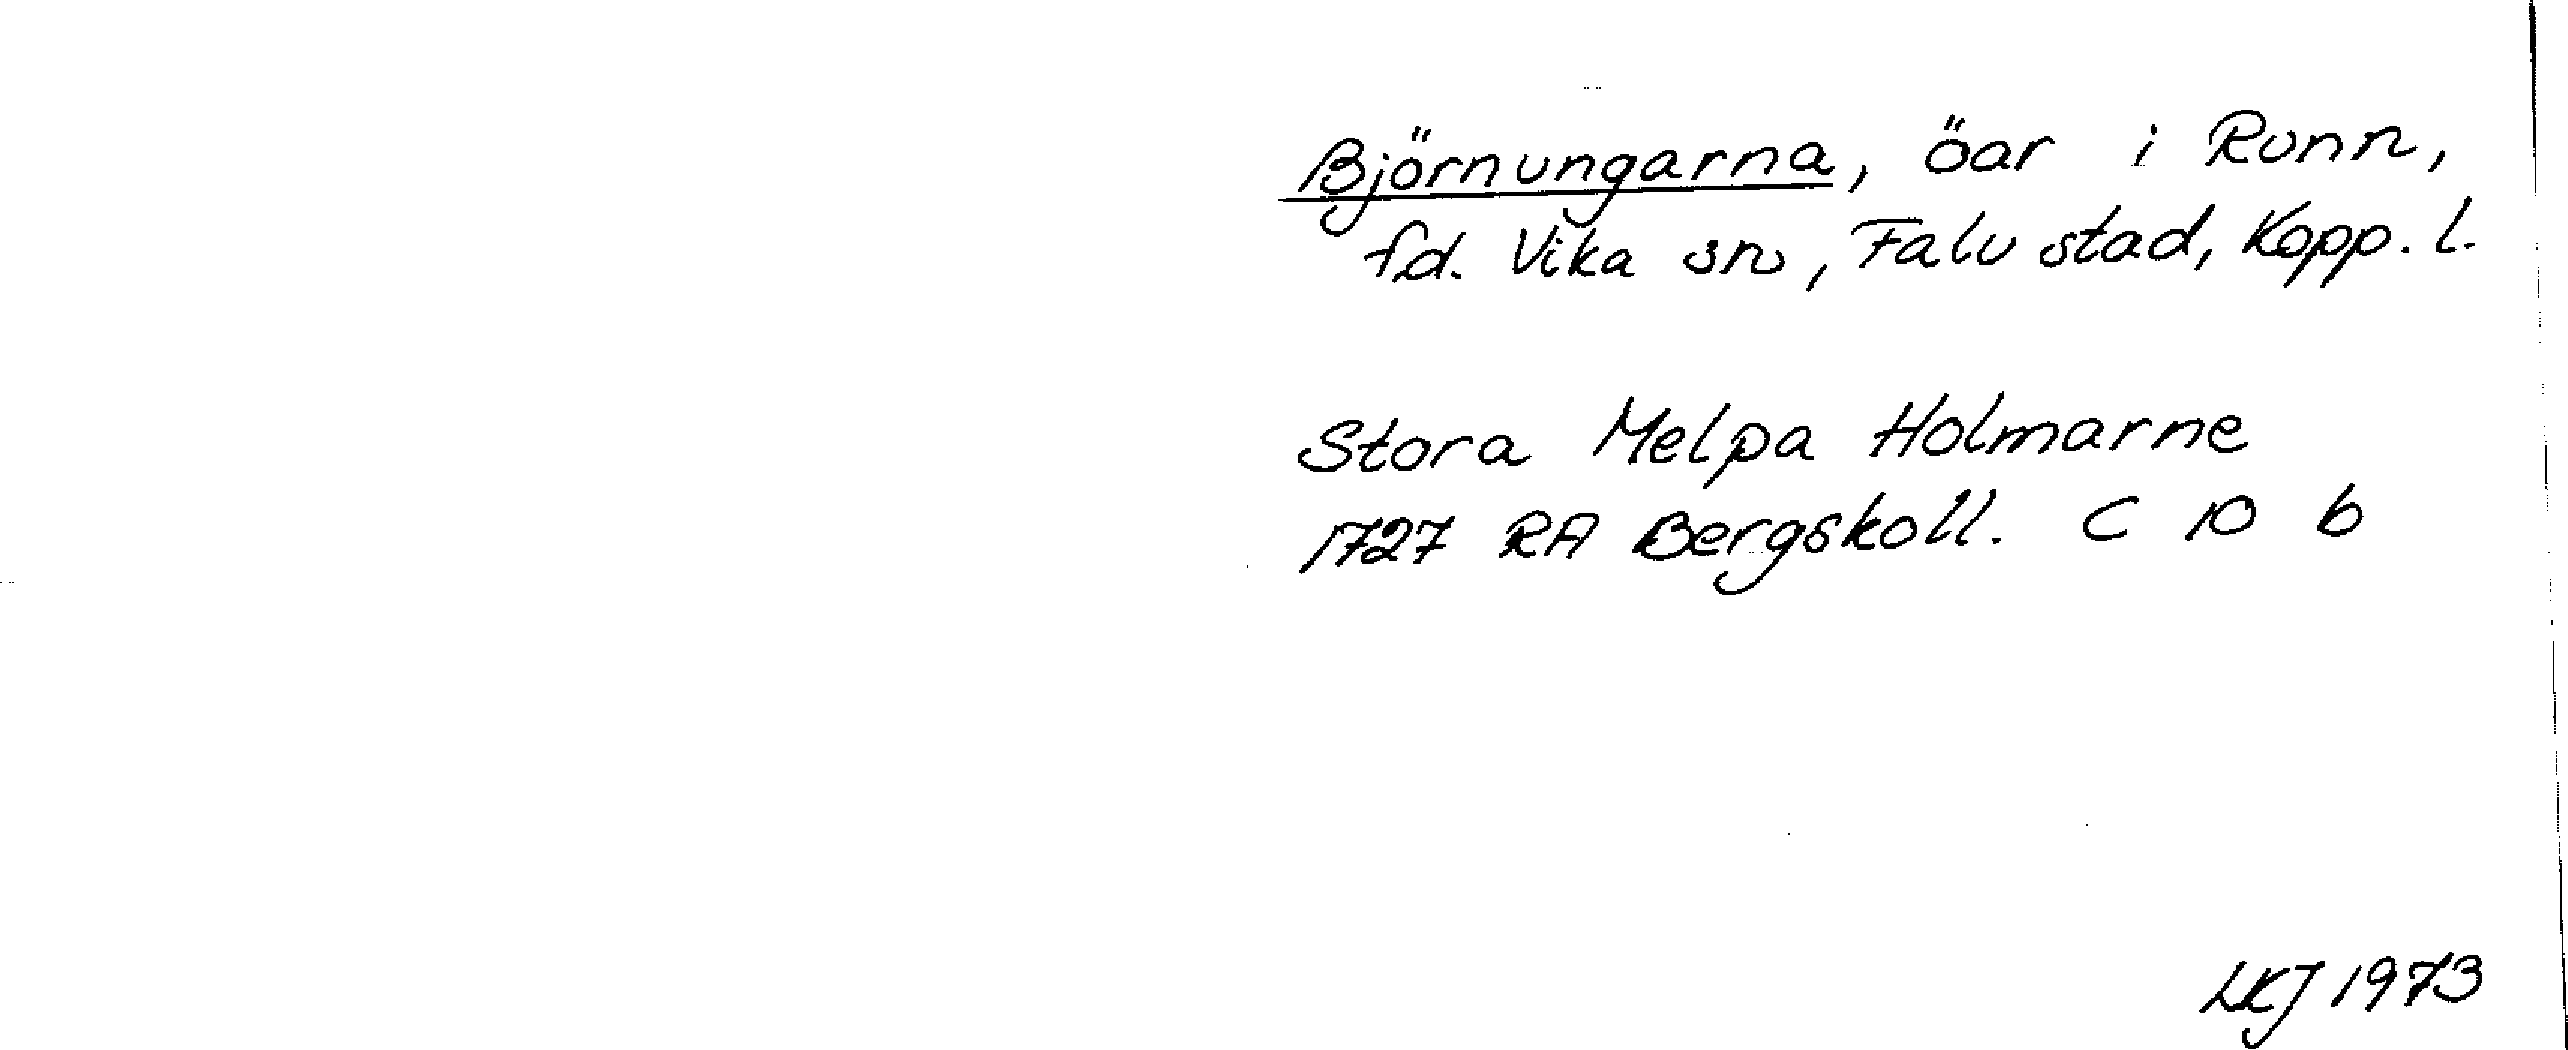 Björnungarna, öar i Runn,
fd. Vika sn, Falu stad, Kopp. l.
Stora Melpa Holmarne
1727 RA Bergskoll. C 10 b
LKJ 1973